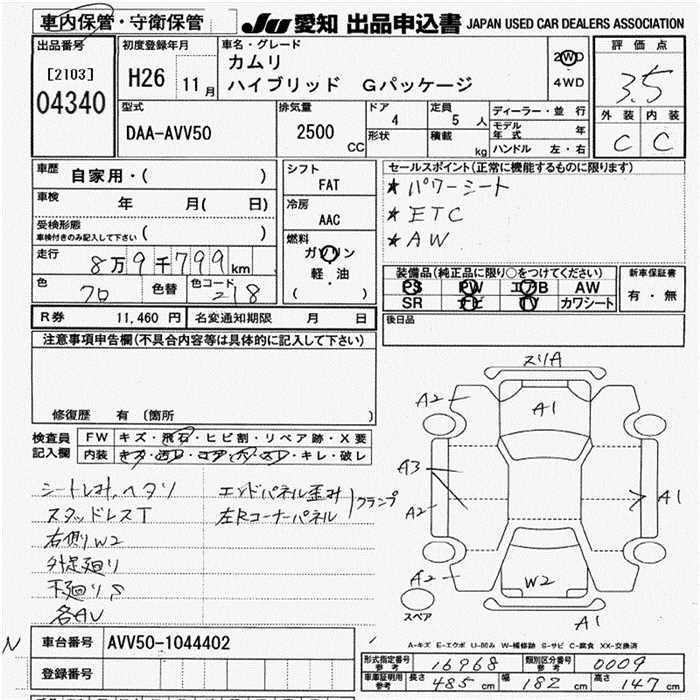 車内保管・守衛保管 JU 愛知 出品申込書 JAPAN USED CAR DEALERS ASSOCIATION
出品番号 初度登録年月 車名・グレード 2WD 評価点
[2103] H26 11月 カムリ 3.5
04340 ハイブリッド Gパッケージ 4WD
型式 排気量 ドア 定員 ディーラー・並行 外装 内装
DAA-AVV50 2500 CC 4 5 人 モデル年式 年 C C
形状 積載 kg ハンドル 左・右
車歴 自家用・( ) シフト セールスポイント(正常に機能するものに限ります)
FAT ★パワーシート
車検 年 月( 日) 冷房 ★ETC
受検形態 AAC ★AW
車検付きのみ記入して下さい ( )
走行 8万9千799km 燃料 ガソリン 装備品(純正品に限り○をつけてください) 新車保証書
軽・油 PS PW エアB AW 有・無
色 色替 色コード 218 ( ) SR ナビ TV カワシート
R券 11,460 円 名変通知期限 月 日 後日品
注意事項申告欄(不具合内容等は具体的に記入して下さい)
修復歴 有 (箇所 )
検査員 FW キズ・飛石・ヒビ割・リペア跡・X要
記入欄 内装 キズ・汚レ・コゲ・穴・スレ・キレ・破レ
エンドパネル歪み
スタッドレスT 左Rコーナーパネル クランプ
右側W2
外足廻り
下廻りS
各AU
スリA
A2 A1
A3
A2 A1
A2 W2
スペア A1
A-キズ E-エクボ U-凹み W-補修跡 S-サビ C-腐食 XX-交換済
N 車台番号 AVV50-1044402
登録番号
形式指定番号 参考 16968 類別区分番号 参考 0009
車庫証明用 参考 長さ 485 cm 幅 182 cm 高さ 147 cm